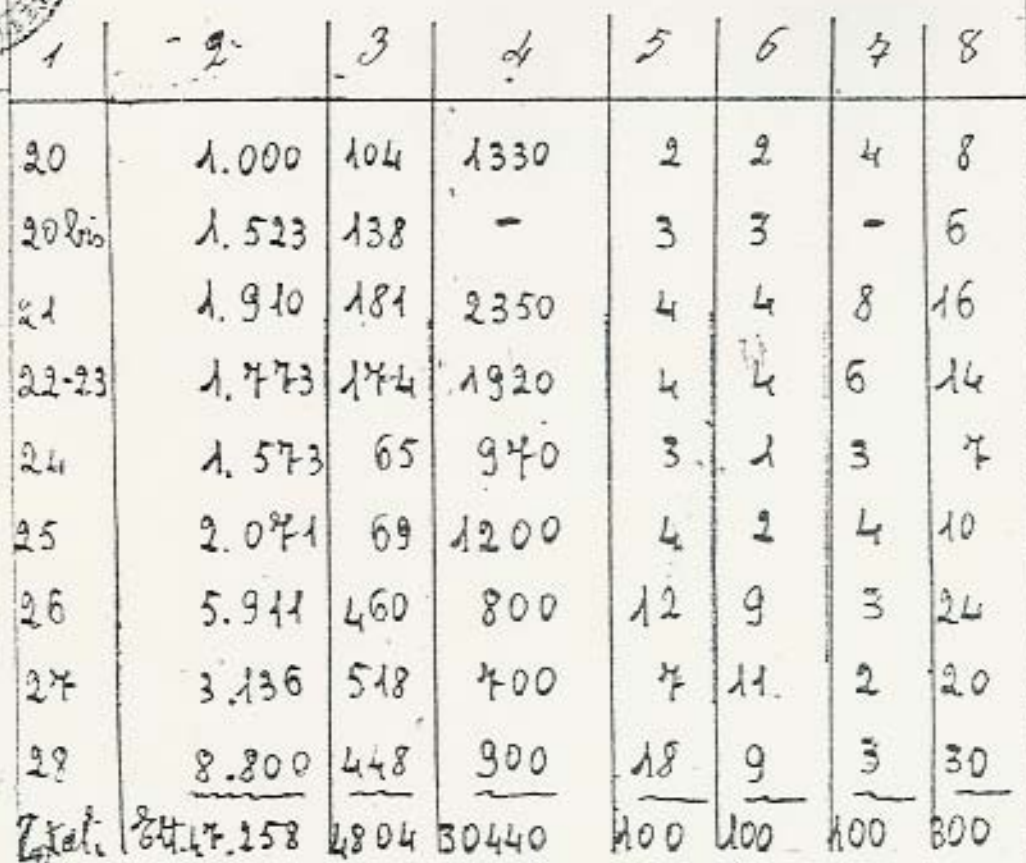 1 - 2 - 3 4 5 6 7 8
20 1.000 104 1330 2 2 4 8
20 bis 1.523 138 - 3 3 - 6
21 1.910 181 2350 4 4 8 16
22-23 1.773 174 1920 4 4 6 14
24 1.573 65 970 3 1 3 7
25 2.071 69 1200 4 2 4 10
26 5.911 460 800 12 9 3 24
27 3.136 518 700 7 11. 2 20
28 8.800 448 900 18 9 3 30
Total. 47.258 4804 30440 100 100 100 300